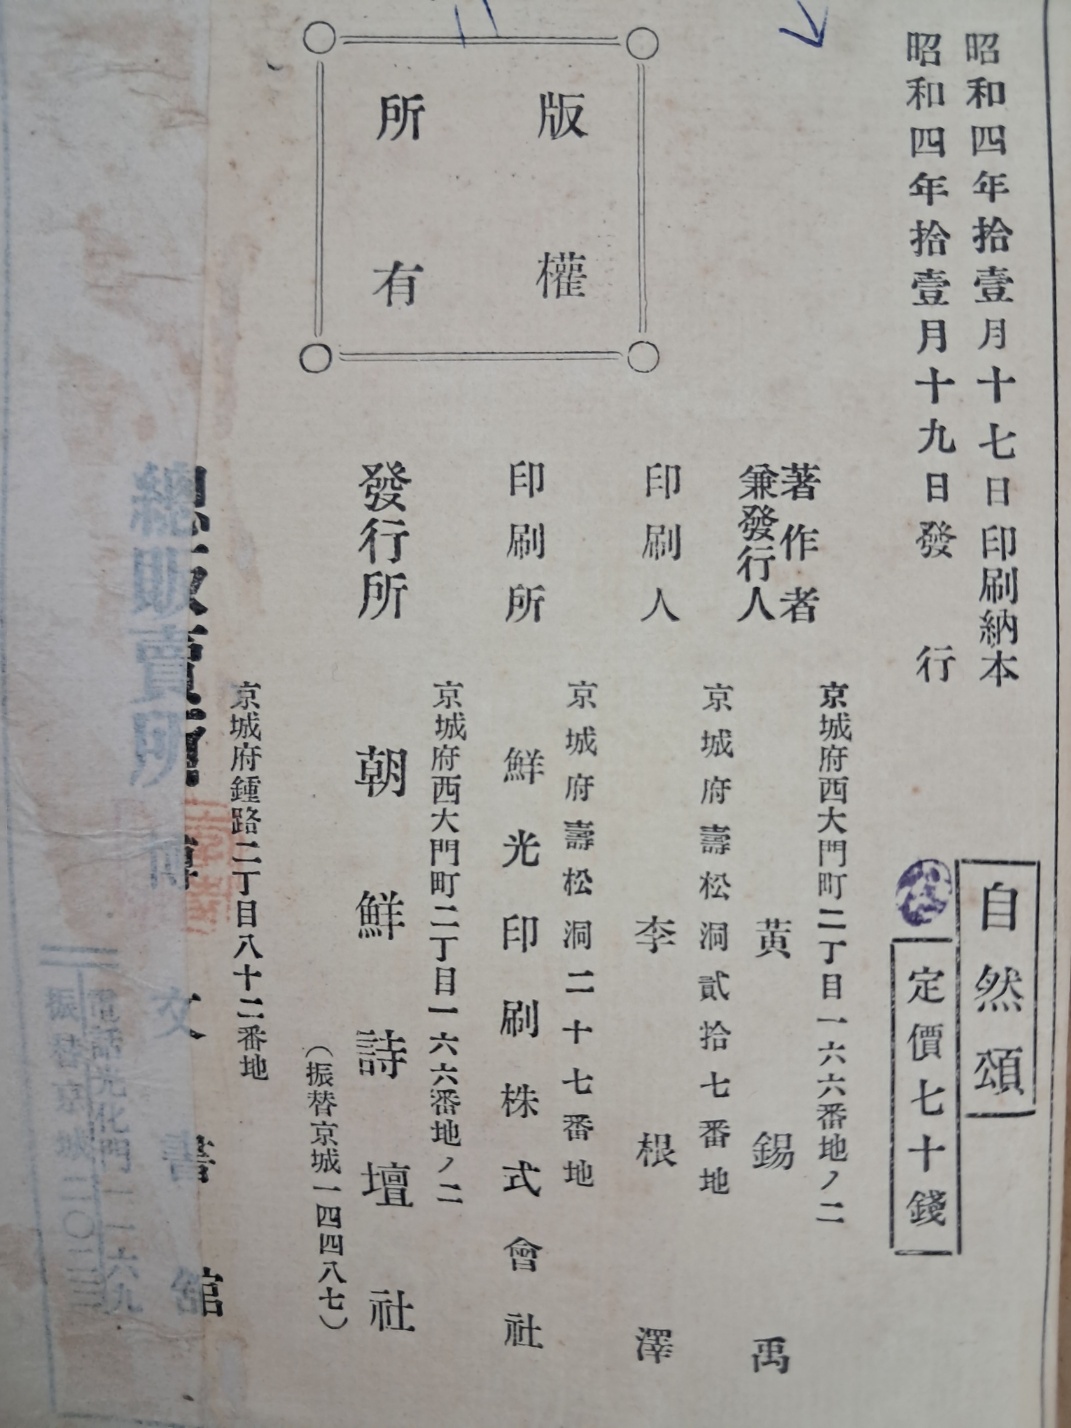 昭和四年拾壹月十七日印刷納本
昭和四年拾壹月十九日發行
自然頌
定價七十錢
版權
所有
京城府西大門町二丁目一六六番地ノ二
著作者
兼發行人
黃錫禹
京城府壽松洞貳拾七番地
印刷人
李根澤
京城府壽松洞二十七番地
印刷所
鮮光印刷株式會社
京城府西大門町二丁目一六六番地ノ二
發行所
朝鮮詩壇社
(振替京城一四四八七)
京城府鍾路二丁目八十二番地
總販賣所
博文書館
電話光化門一一六九
振替京城二〇二三